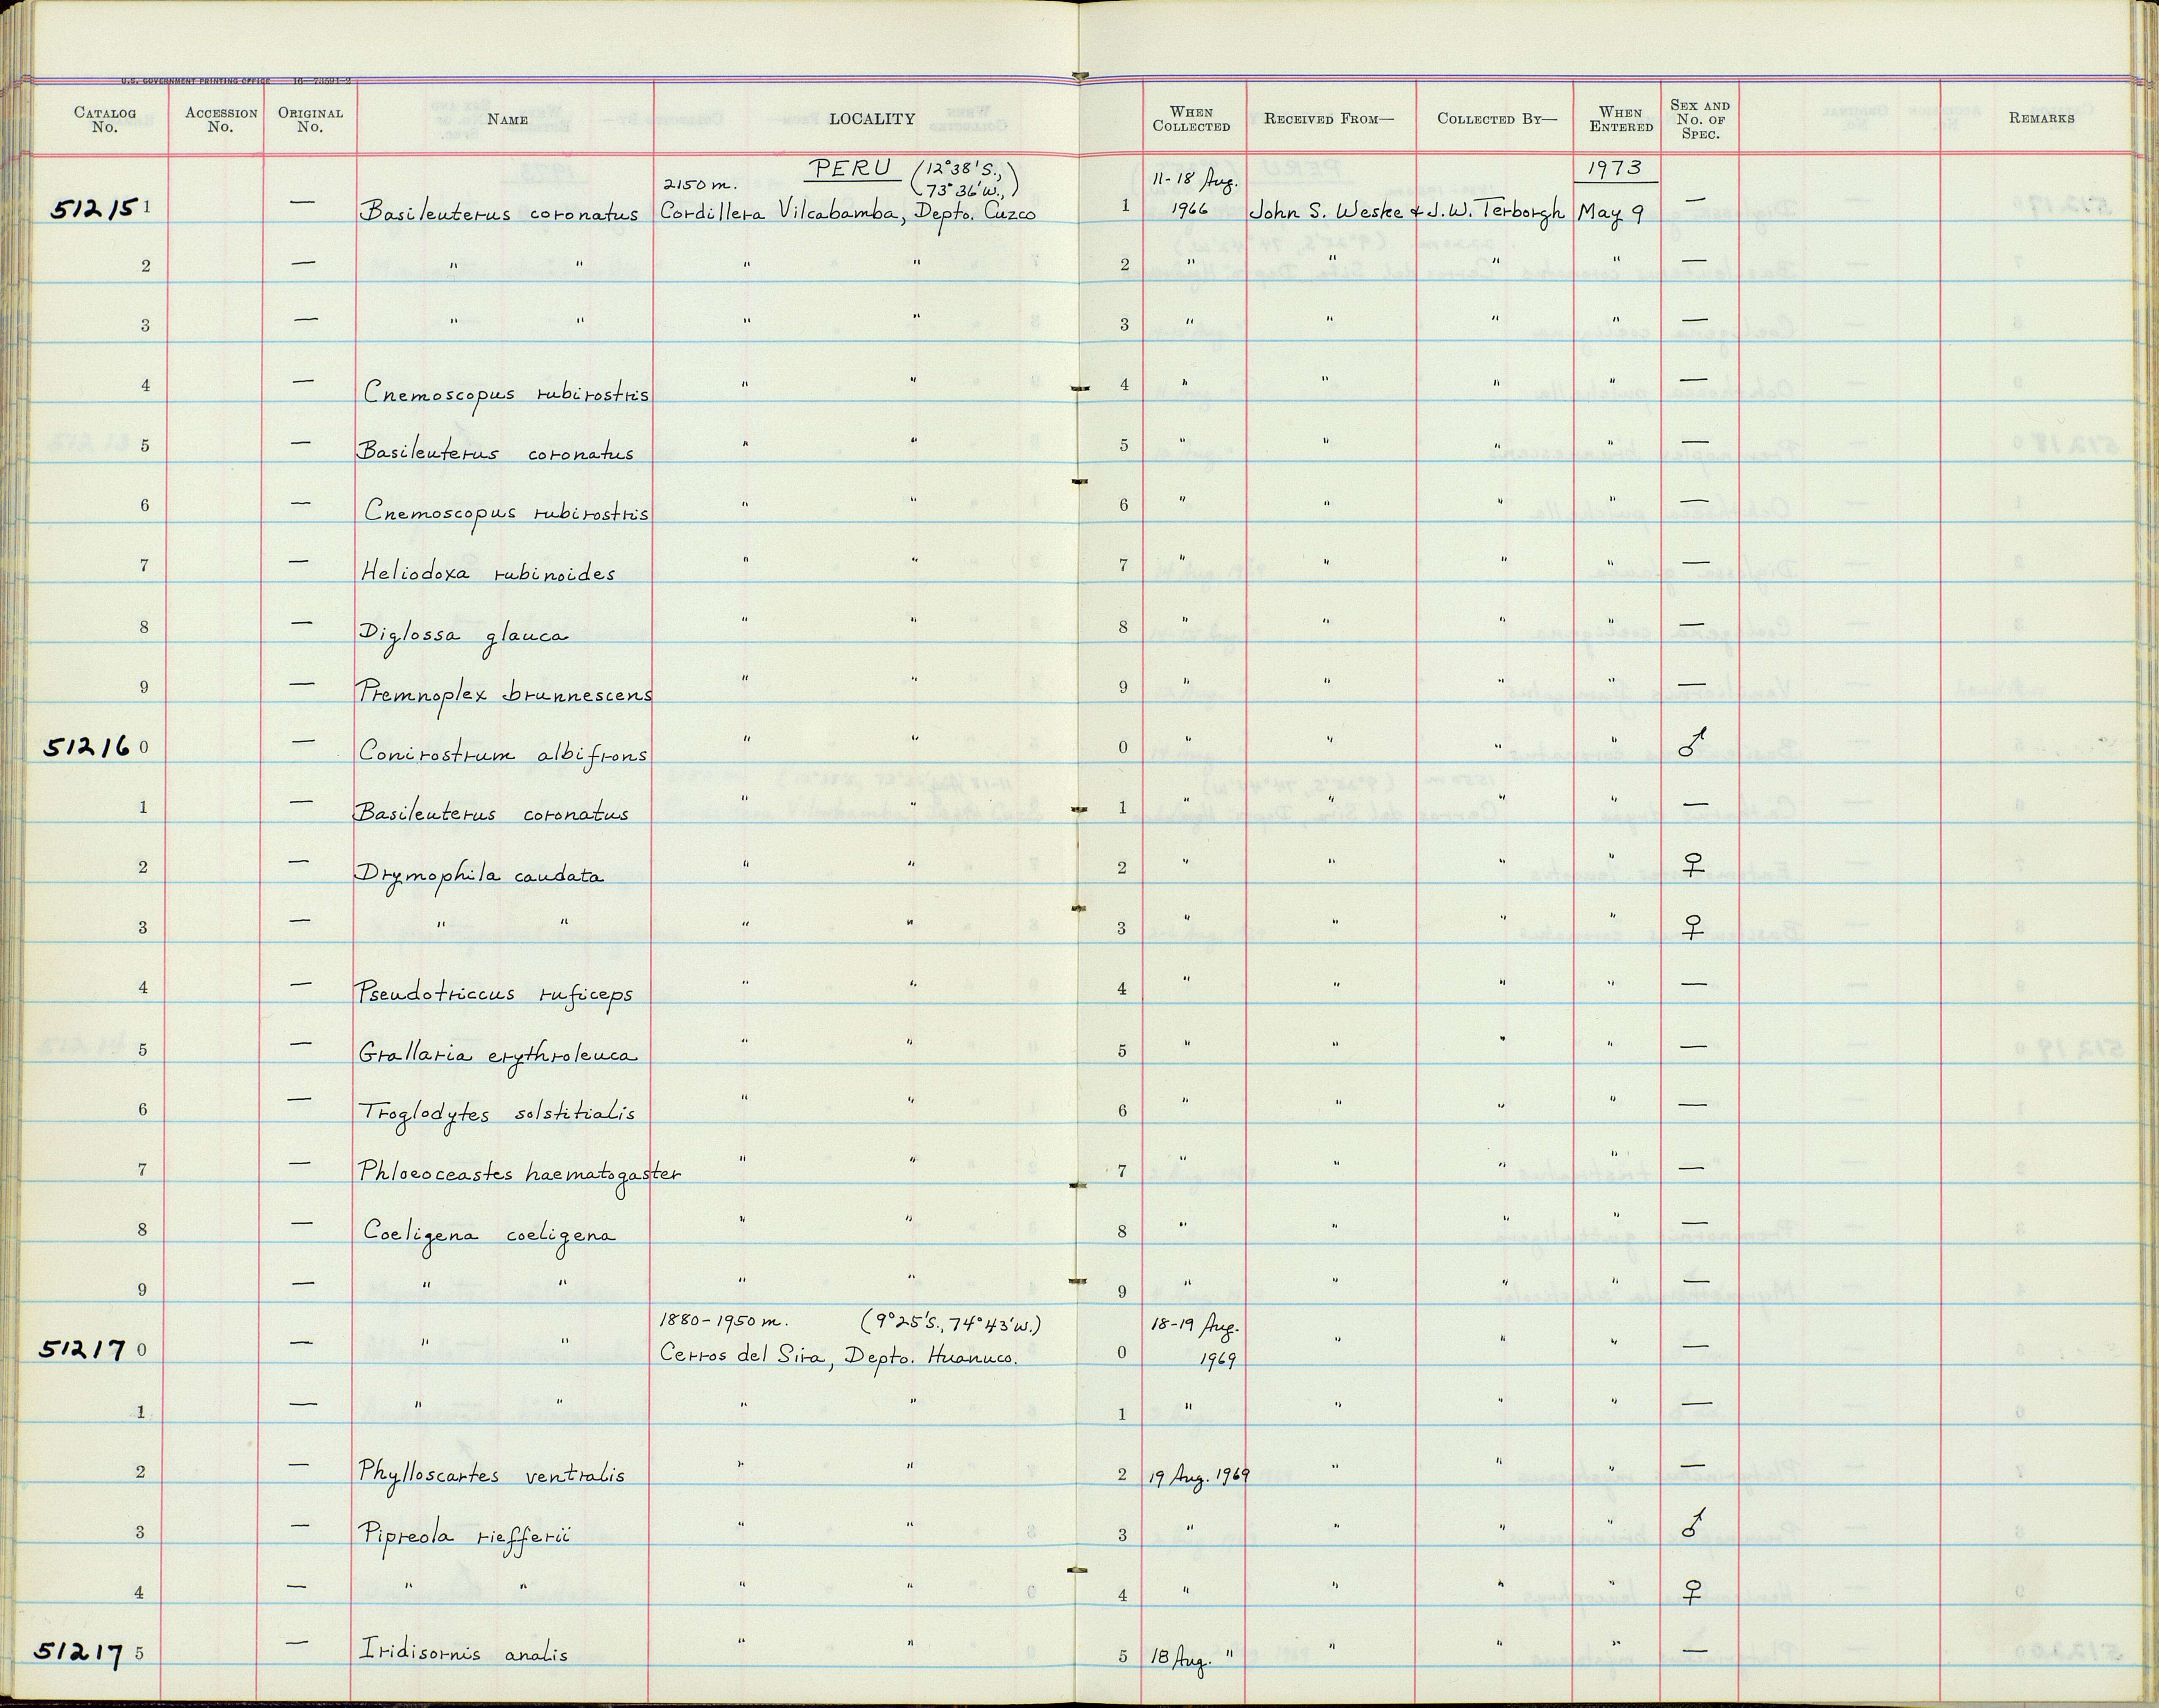 U.S. GOVERNMENT PRINTING OFFICE 16—73591-2
CATALOG No. ACCESSION No. ORIGINAL No. NAME LOCALITY WHEN COLLECTED RECEIVED FROM— COLLECTED BY— WHEN ENTERED SEX AND No. OF SPEC. REMARKS
2150 m. PERU (12°38'S., 73°36'W.,) 11-18 Aug. 1973
512151 — Basileuterus coronatus Cordillera Vilcabamba, Depto. Cuzco 1 1966 John S. Weske & J.W. Terborgh May 9 —
2 — " " " " 2 " " " " —
3 — " " " " 3 " " " " —
4 — Cnemoscopus rubirostris " " 4 " " " " —
5 — Basileuterus coronatus " " 5 " " " " —
6 — Cnemoscopus rubirostris " " 6 " " " " —
7 — Heliodoxa rubinoides " " 7 " " " " —
8 — Diglossa glauca " " 8 " " " " —
9 — Premnoplex brunnescens " " 9 " " " " —
512160 — Conirostrum albifrons " " 0 " " " " ♂
1 — Basileuterus coronatus " " 1 " " " " —
2 — Drymophila caudata " " 2 " " " " ♀
3 — " " " " 3 " " " " ♀
4 — Pseudotriccus ruficeps " " 4 " " " " —
5 — Grallaria erythroleuca " " 5 " " " " —
6 — Troglodytes solstitialis " " 6 " " " " —
7 — Phloeoceastes haematogaster " " 7 " " " " —
8 — Coeligena coeligena " " 8 " " " " —
9 — " " " " 9 " " " " —
1880-1950 m. (9°25'S., 74°43'W.) 18-19 Aug.
512170 — " " Cerros del Sira, Depto. Huanuco. 0 1969 " " " —
1 — " " " " 1 " " " " —
2 — Phylloscartes ventralis " " 2 19 Aug. 1969 " " " —
3 — Pipreola riefferii " " 3 " " " " ♂
4 — " " " " 4 " " " " ♀
512175 — Iridisornis analis " " 5 18 Aug. " " " " —